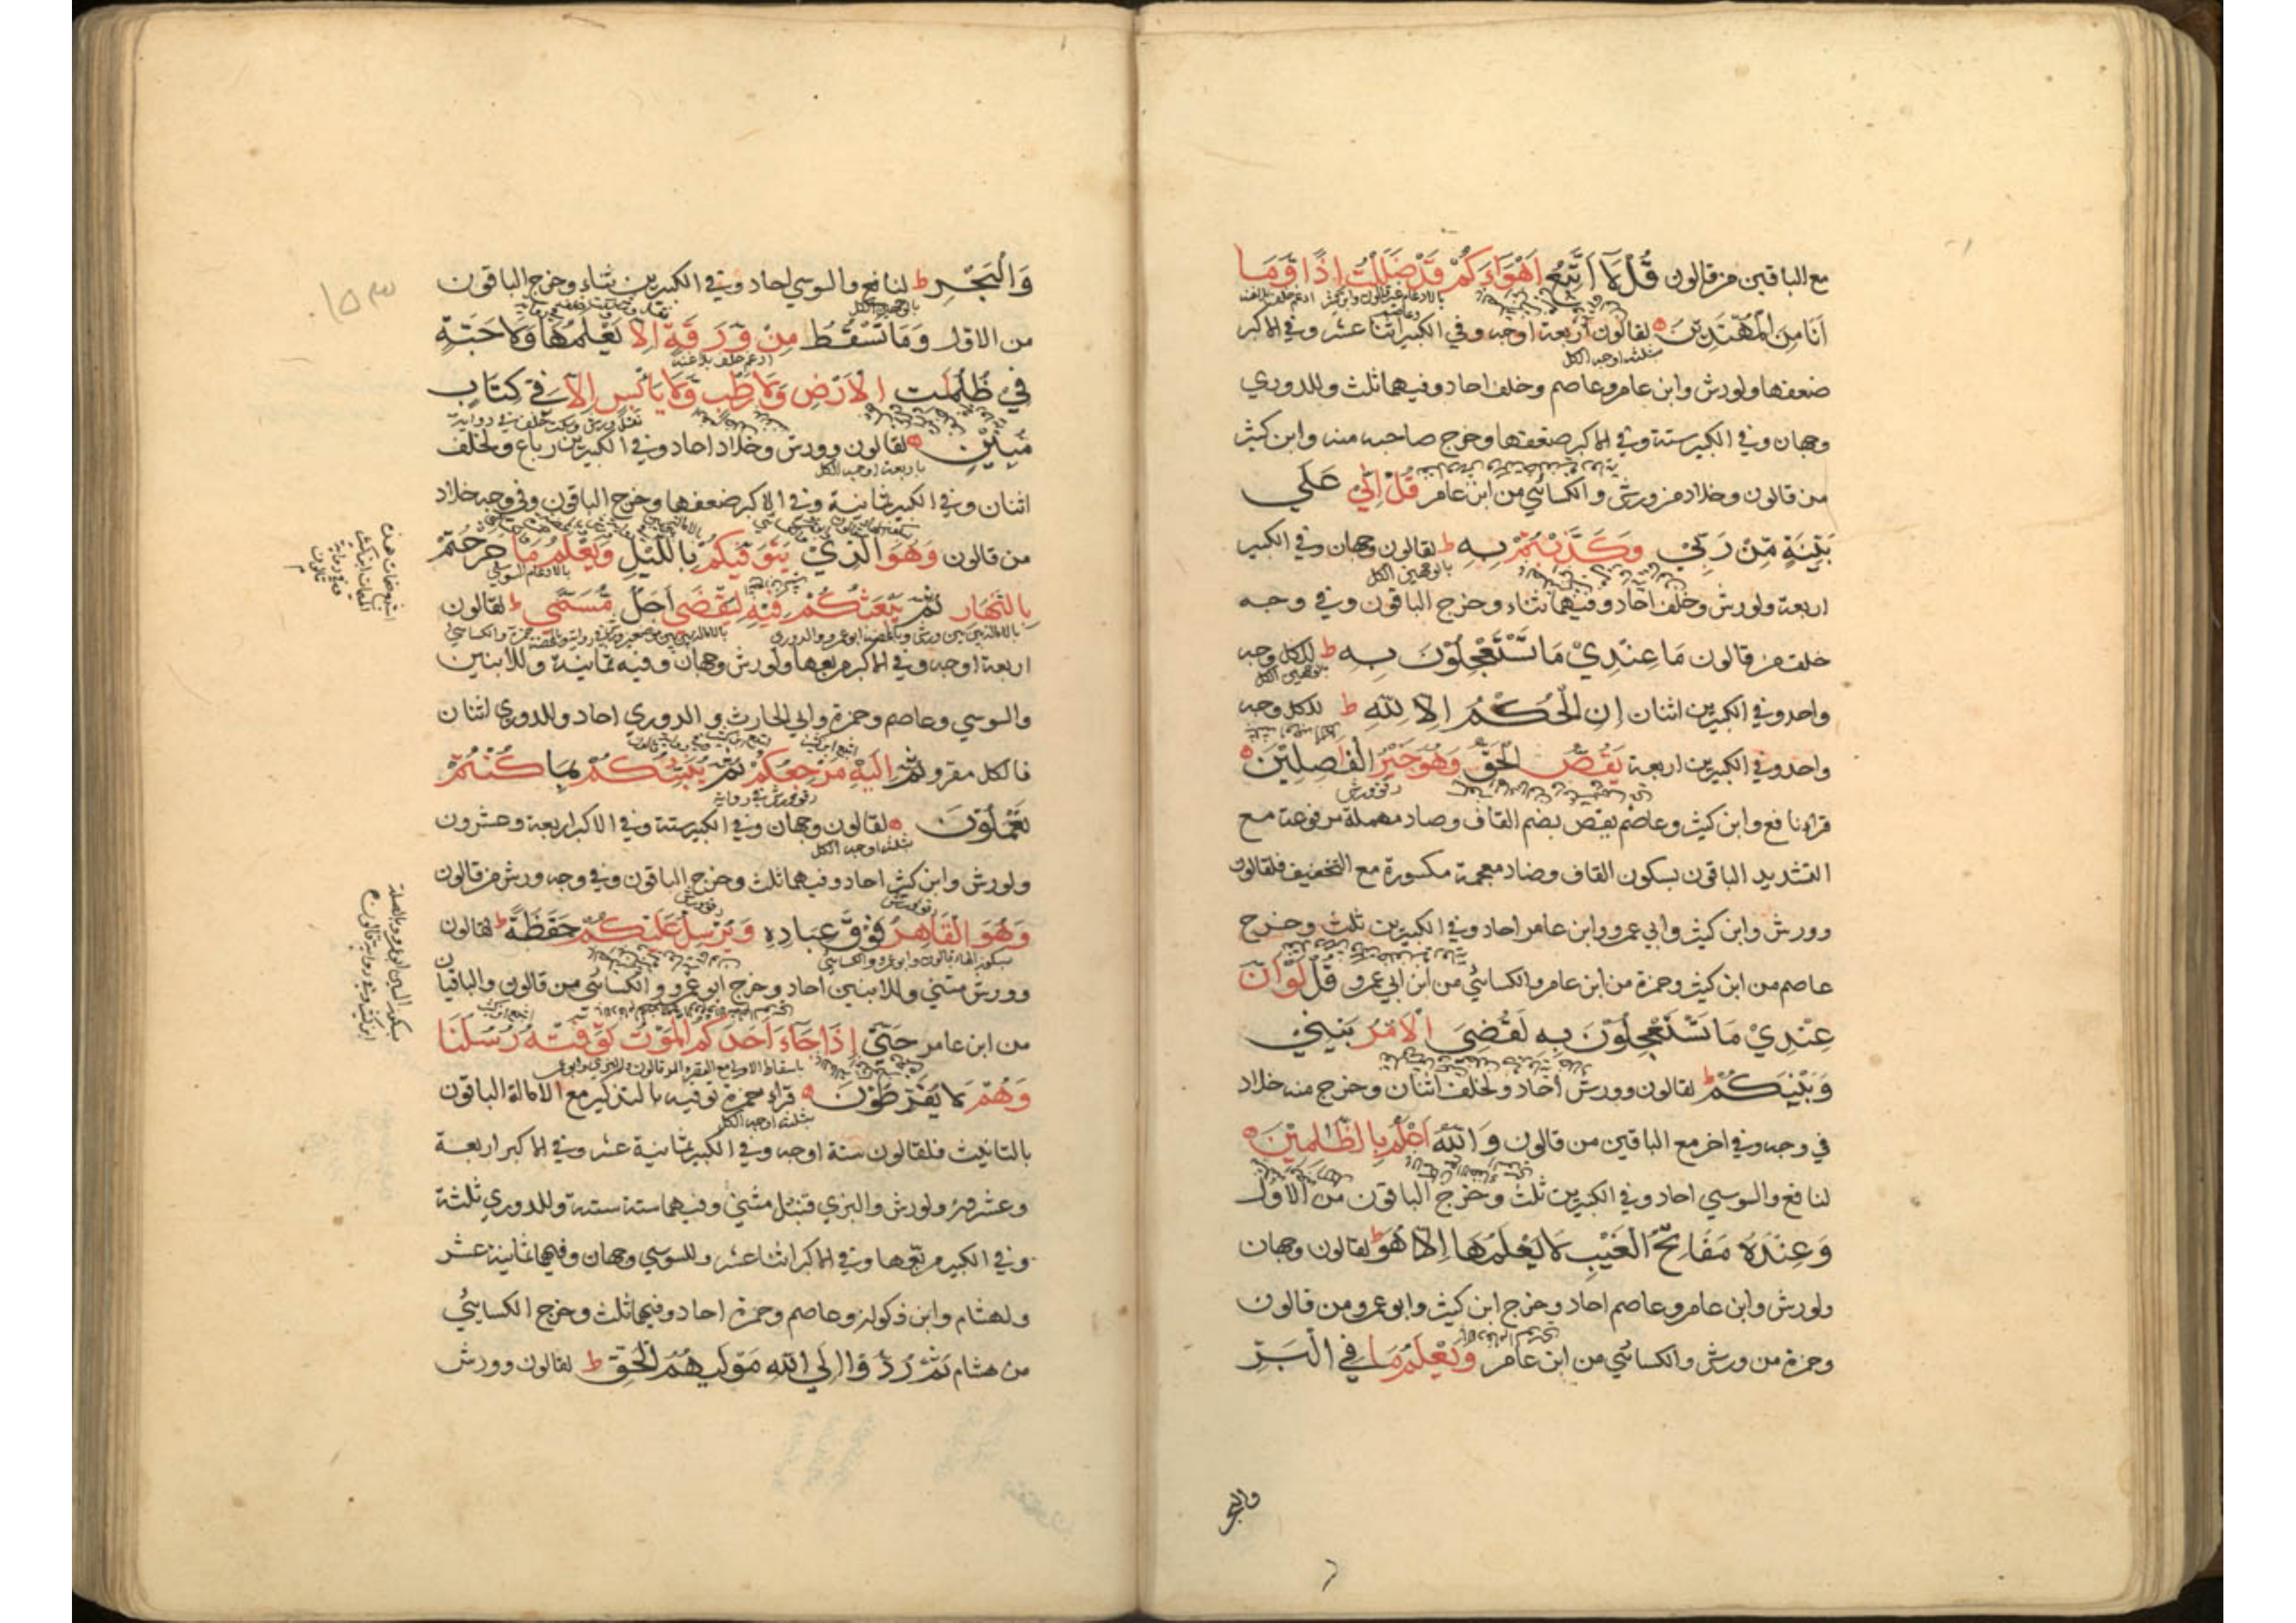 مع الباقين من قالون قُلْ لَا اَتَّبِعُ اَهْوَاءَكُمْ قَدْ ضَلَلْتُ اِذًا وَّمَا
اَنَا مِنَ الْمُهْتَدِيْنَ لقالون اربعة اوجه وفي الكبير اثنا عشر وفي الاكبر
ثلثة اوجه الكل
ضعفها ولورش وابن عامر وعاصم وخلف احاد وفيهما ثلث وللدوري
وجهان وفي الكبير ستة وفي الاكبر ضعفها وخرج صاحبه منه وابن كثير
من قالون وخلاد من ورش والكسائي من ابن عامر قُلْ اِنِّيْ عَلَي
بَيِّنَةٍ مِّنْ رَبِّي وَكَذَّبْتُمْ بِهِ ط لقالون وجهان وفي الكبير
بالوجهين الكل
اربعة ولورش وخلف احاد وفيهما ثناء وخرج الباقون وفي وجه
خلف من قالون مَا عِنْدِيْ مَا تَسْتَعْجِلُوْنَ بِهِ ط للكل وجه
بالوجهين الكل
واحد وفي الكبيرين اثنان اِنِ الْحُكْمُ اِلَّا لِلّٰهِ ط للكل وجه
واحد وفي الكبيرين اربعة يَقُصُّ الْحَقَّ وَهُوَ خَيْرُ الْفَاصِلِيْنَ
رقق ورش
قراء نافع وابن كثير وعاصم يقص بضم القاف وصاد مهملة مرفوعة مع
التشديد الباقون بسكون القاف وضاد معجمة مكسورة مع التخفيف فلقالون
وورش وابن كثير وابي عمرو وابن عامر احاد وفي الكبيرين ثلث وخرج
عاصم من ابن كثير وحمزة من ابن عامر والكسائي من ابن ابي عمرو قُلْ لَوْ اَنَّ
عِنْدِيْ مَا تَسْتَعْجِلُوْنَ بِهِ لَقُضِيَ الْاَمْرُ بَيْنِيْ
وَبَيْنَكُمْ ط لقالون وورش احاد ولخلف اثنان وخرج منه خلاد
في وجه وفي اخر مع الباقين من قالون وَاللّٰهُ اَعْلَمُ بِالظّٰلِمِيْنَ
لنافع والسوسي احاد وفي الكبيرين ثلث وخرج الباقون من الاول
وَعِنْدَهُ مَفَاتِحُ الْغَيْبِ لَا يَعْلَمُهَا اِلَّا هُوَ ط لقالون وجهان
ولورش وابن عامر وعاصم احاد وخرج ابن كثير وابو عمرو من قالون
وحمزة من ورش والكسائي من ابن عامر وَيَعْلَمُ مَا فِي الْبَرِّ
والبحر
١٥٣
وَالْبَحْرِ ط لنافع والسوسي احاد وفي الكبيرين ثناء وخرج الباقون
بالوجهين الكل
من الاول وَمَا تَسْقُطُ مِنْ وَّرَقَةٍ اِلَّا يَعْلَمُهَا وَلَا حَبَّةٍ
ادغم خلف بلاغنة
فِيْ ظُلُمٰتِ الْاَرْضِ وَلَا رَطْبٍ وَّلَا يَابِسٍ اِلَّا فِيْ كِتَابٍ
مُّبِيْنٍ لقالون وورش وخلاد احاد وفي الكبيرين رباع ولخلف
باربعة اوجه الكل
اثنان وفي الكبير ثمانية وفي الاكبر ضعفها وخرج الباقون وفي وجه خلاد
من قالون وَهُوَ الَّذِيْ يَتَوَفّٰيكُمْ بِالَّيْلِ وَيَعْلَمُ مَا جَرَحْتُمْ
بالادغام السوسي
بِالنَّهَارِ ثُمَّ يَبْعَثُكُمْ فِيْهِ لِيُقْضٰى اَجَلٌ مُّسَمًّى ط لقالون
اربعة اوجه وفي الاكبر مربعها ولورش وجهان وفيه ثمانية وللابنين
والسوسي وعاصم وحمزة وابي الحارث والدوري احاد وللدوري اثنان
فالكل مقرو ثُمَّ اِلَيْهِ مَرْجِعُكُمْ ثُمَّ يُنَبِّئُكُمْ بِمَا كُنْتُمْ
رقق ورش في رواية
تَعْمَلُوْنَ لقالون وجهان وفي الكبير ستة وفي الاكبر اربعة وعشرون
ثلثة اوجه الكل
ولورش وابن كثير احاد وفيهما ثلث وخرج الباقون وفي وجه ورش من قالون
رقق ورش رقق ورش
وَهُوَ الْقَاهِرُ فَوْقَ عِبَادِهِ وَيُرْسِلُ عَلَيْكُمْ حَفَظَةً ط لقالون
بسكون الهاء قالون وابو عمرو والكسائي
وورش مثني وللابنين احاد وخرج ابو عمرو والكسائي من قالون والباقيان
من ابن عامر حَتّٰي اِذَا جَاءَ اَحَدَكُمُ الْمَوْتُ تَوَفَّتْهُ رُسُلُنَا
وَهُمْ لَا يُفَرِّطُوْنَ قراء حمزة توفيه بالتذكير مع الامالة الباقون
بثلثة اوجه الكل
بالتانيث فلقالون ستة اوجه وفي الكبير ثمانية عشر وفي الاكبر اربعة
وعشرون ولورش والبزي قنبل مثني وفيهما ستة ستة وللدوري ثلثة
وفي الكبير مربعها وفي الاكبر اثنا عشر وللسوسي وجهان وفيهما ثمانية عشر
ولهشام وابن ذكوان وعاصم وحمزة احاد وفيهما ثلث وخرج الكسائي
من هشام ثُمَّ رُدُّوْا اِلَي اللّٰهِ مَوْلٰيهُمُ الْحَقِّ ط لقالون وورش